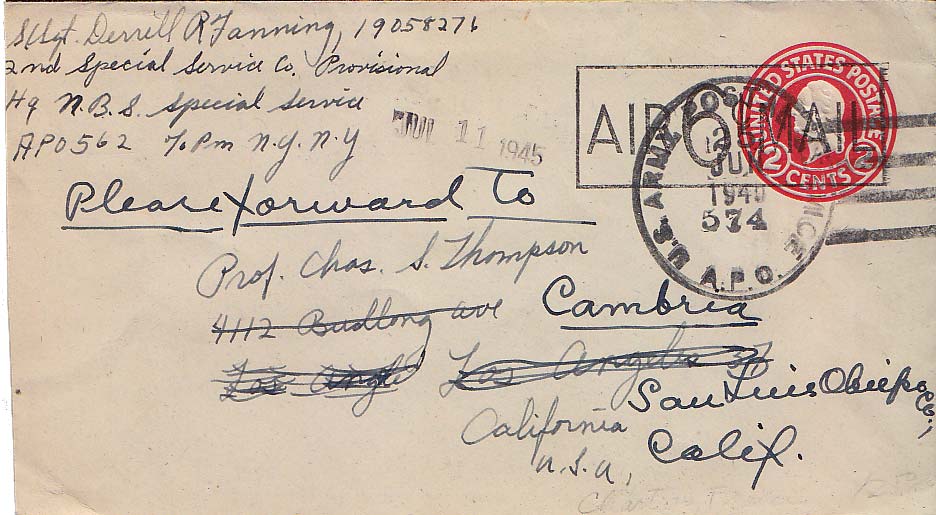 S/Sgt. Derrell R Fanning, 19058276
2nd Special Service Co. Provisional
Hq N.B.S. Special Service
APO 562 c/o Pm N.Y. N.Y
JUN 11 1945
AIR 6¢ MAIL
UNITED STATES POSTAGE
2 CENTS 2
U.S. ARMY POSTAL SERVICE
A.P.O.
12
JUN
1945
574
Please forward to
Prof. Chas. S. Thompson
4112 Budlong ave
Cambria
Los Angele
Los Angeles 37
San Luis Obispo Co.,
California
Calif.
U.S.A,